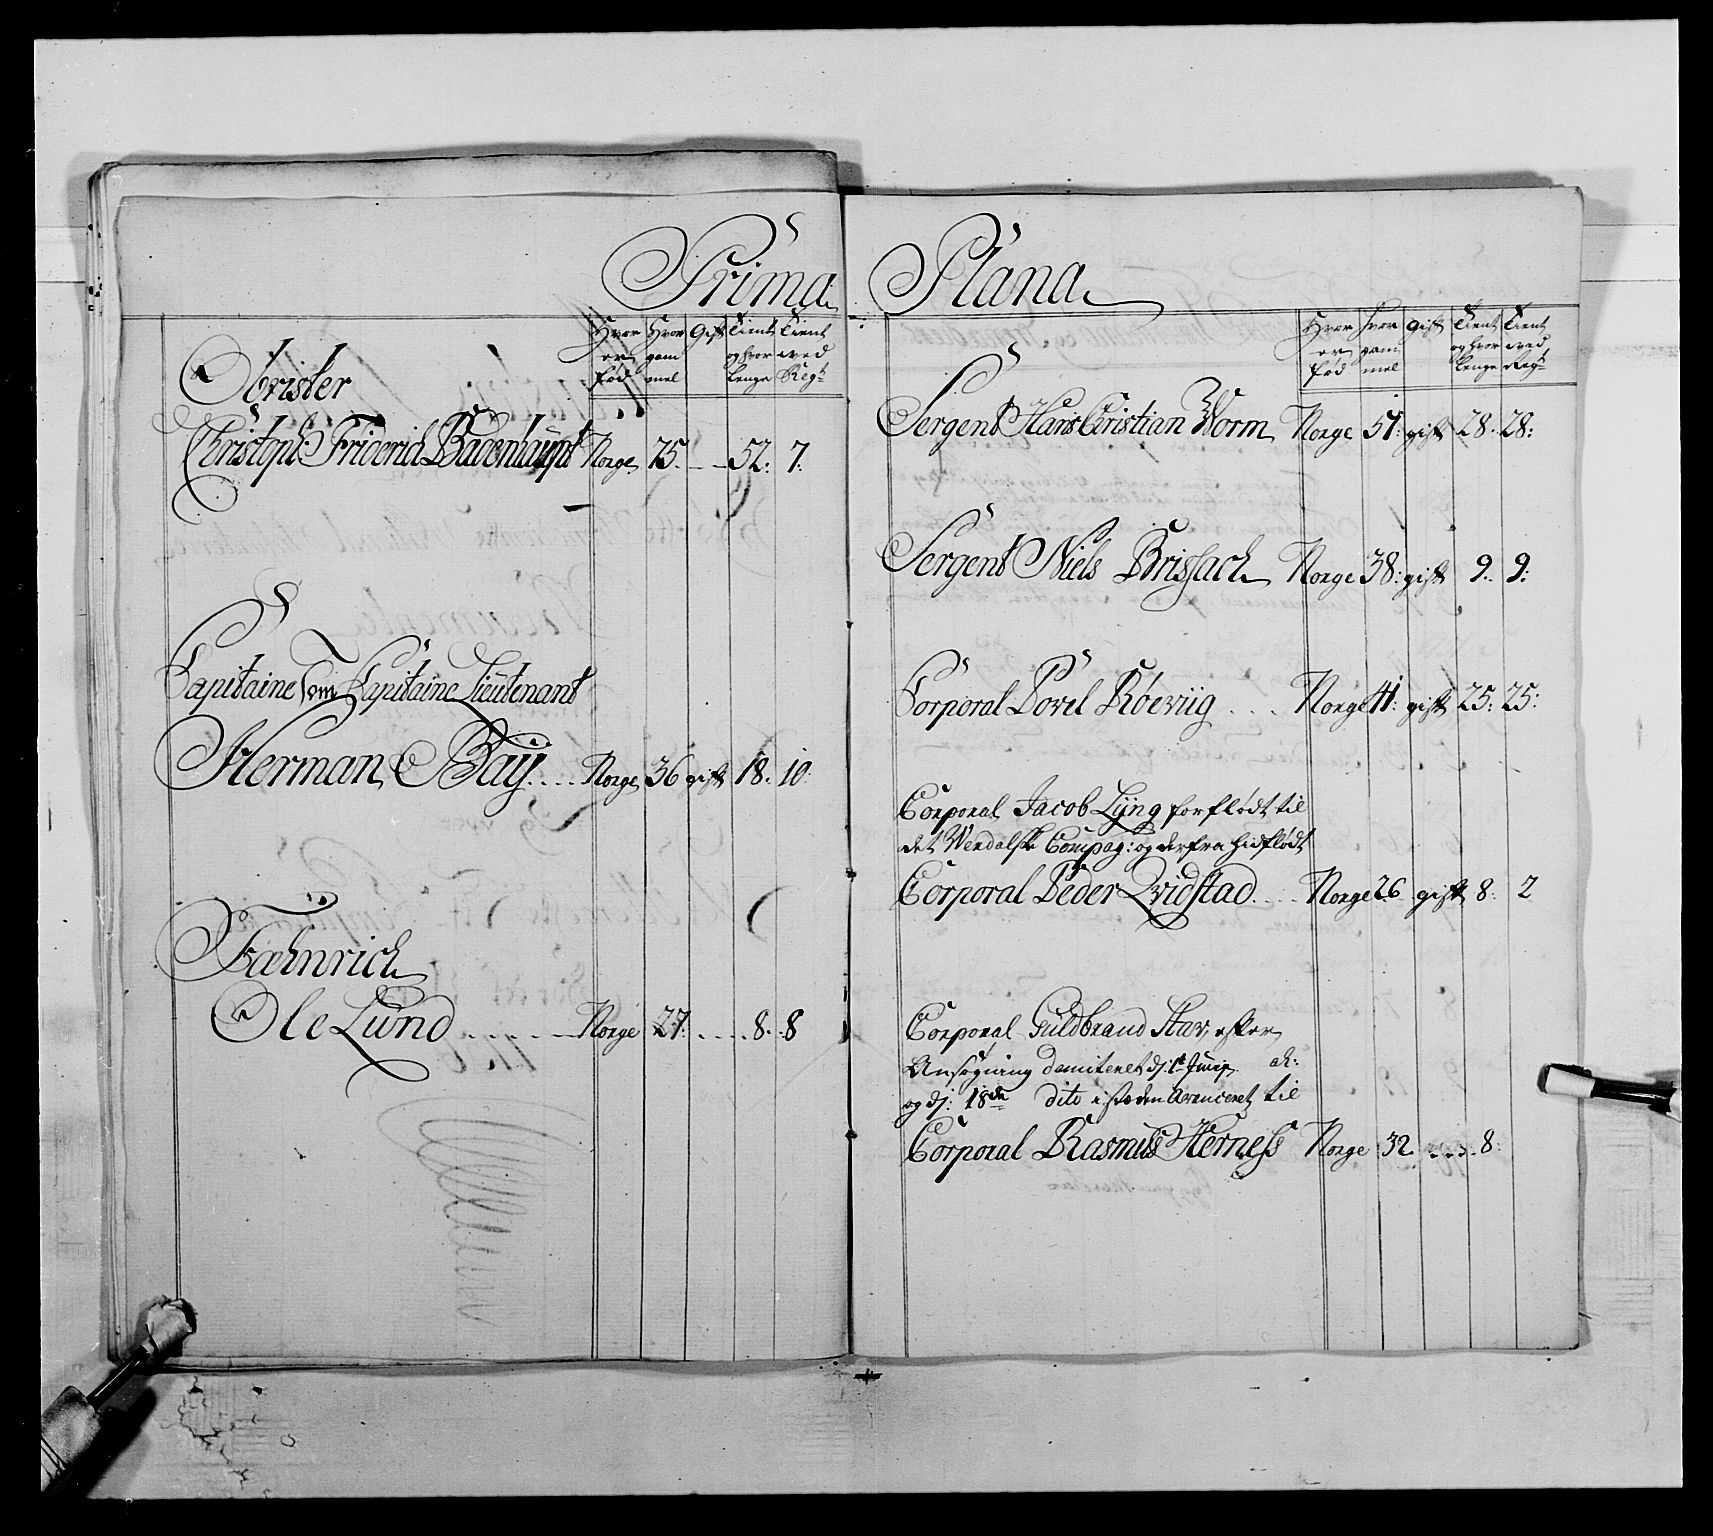 Prima Plana
Hvor er fød
Hvor gammel
Gift
Tient og hvor lenge
Tient ved Regt
Obrister
Christoph Friderich Badenhaupt Norge 75. 52: 7:
Capitaine som Capitaine Lieutenant
Herman Bay Norge 36 gift 18. 10:
Fæhnrich
Ole Lund Norge 27. 8. 8
Hvor er fød
Hvor gammel
gift
Tient og hvor lenge
Tient ved Regt
Sergent Hans Cristian Worm Norge 51: gift 28. 28:
Sergent Niels Brissach Norge 38: gift 9. 9:
Corporal Povel Røeviig Norge 41: gift 25: 25:
Corporal Jacob Lÿng forflødt til
det Werdalske Compag: og derfra hidflødt
Corporal Peder Qvidstad Norge 26 gift 8: 2
Corporal Guldbrand Stav, efter
Ansøgning demiteret dj: 1t Junij
og dj: 18de dito i steden avanceret til
Corporal Rasmus Herness Norge 32. 8: